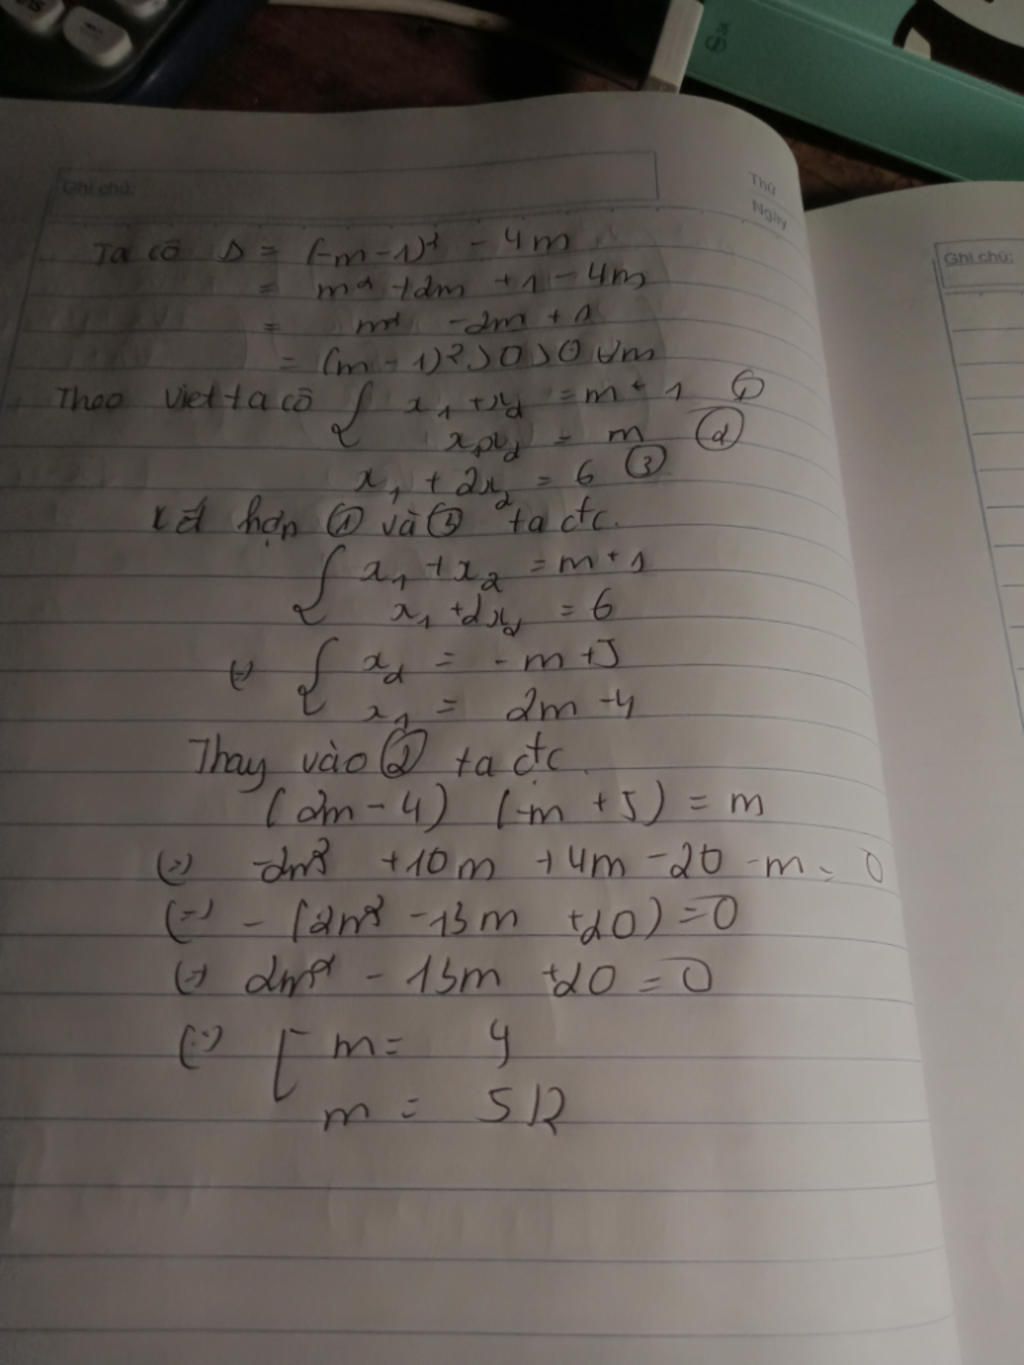 Ghi chú:
Thứ
Ngày
Ghi chú:
Ta có Δ = (-m-1)² - 4m
= m² + 2m + 1 - 4m
= m² - 2m + 1
= (m - 1)² > 0 > 0 ∀m
Theo Viet ta có { x₁ + x₂ = m + 1 ①
x₁x₂ = m ②
x₁ + 2x₂ = 6 ③
Kết hợp ① và ③ ta đc.
{ x₁ + x₂ = m + 1
x₁ + 2x₂ = 6
(=) { x₂ = -m + 5
x₁ = 2m - 4
Thay vào ② ta đc.
(2m - 4) (-m + 5) = m
(=) -2m² + 10m + 4m - 20 - m = 0
(=) - (2m² - 13m + 20) = 0
(=) 2m² - 13m + 20 = 0
(=) [ m = 4
m = 5/2